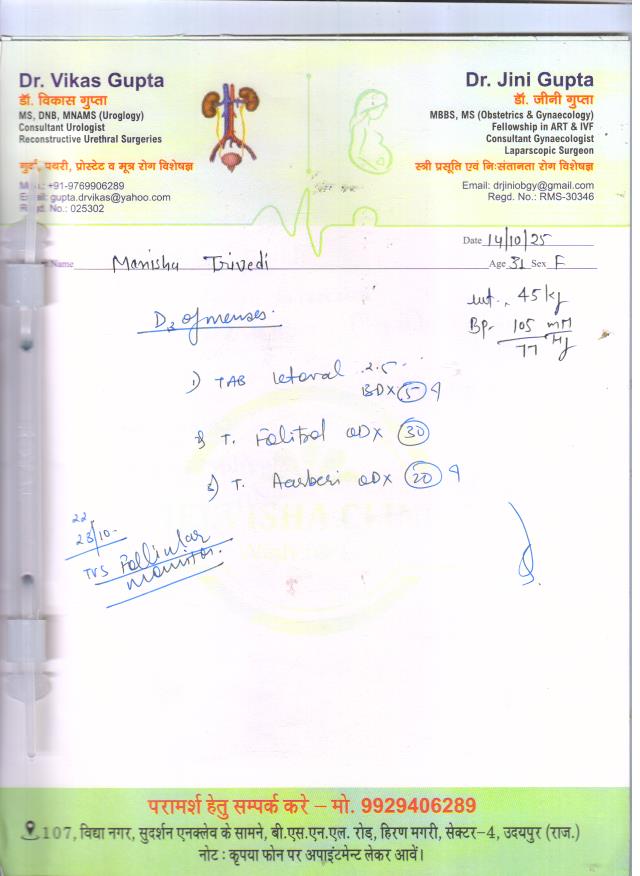 Dr. Vikas Gupta
डॉ. विकास गुप्ता
MS, DNB, MNAMS (Uroglogy)
Consultant Urologist
Reconstructive Urethral Surgeries
गुर्दा, पथरी, प्रोस्टेट व मूत्र रोग विशेषज्ञ
+91-9769906289
gupta.drvikas@yahoo.com
No. : 025302
Dr. Jini Gupta
डॉ. जीनी गुप्ता
MBBS, MS (Obstetrics & Gynaecology)
Fellowship in ART & IVF
Consultant Gynaecologist
Laparscopic Surgeon
स्त्री प्रसूति एवं निःसंतानता रोग विशेषज्ञ
Email: drjiniobgy@gmail.com
Regd. No.: RMS-30346
Date 14/10/25
Name Manisha Trivedi Age 31 Sex F
wt. 45 kg
BP- 105 mm
77 Hg
D3 of menses.
1) TAB letoval 2.5
BD x 5
2) T. Folitral OD x 30
3) T. Aarberi OD x 20
22
23/10
TVS Follicular
monitor.
परामर्श हेतु सम्पर्क करे – मो. 9929406289
107, विद्या नगर, सुदर्शन एनक्लेव के सामने, बी.एस.एन.एल. रोड, हिरण मगरी, सेक्टर-4, उदयपुर (राज.)
नोट : कृपया फोन पर अपाइंटमेन्ट लेकर आवें।